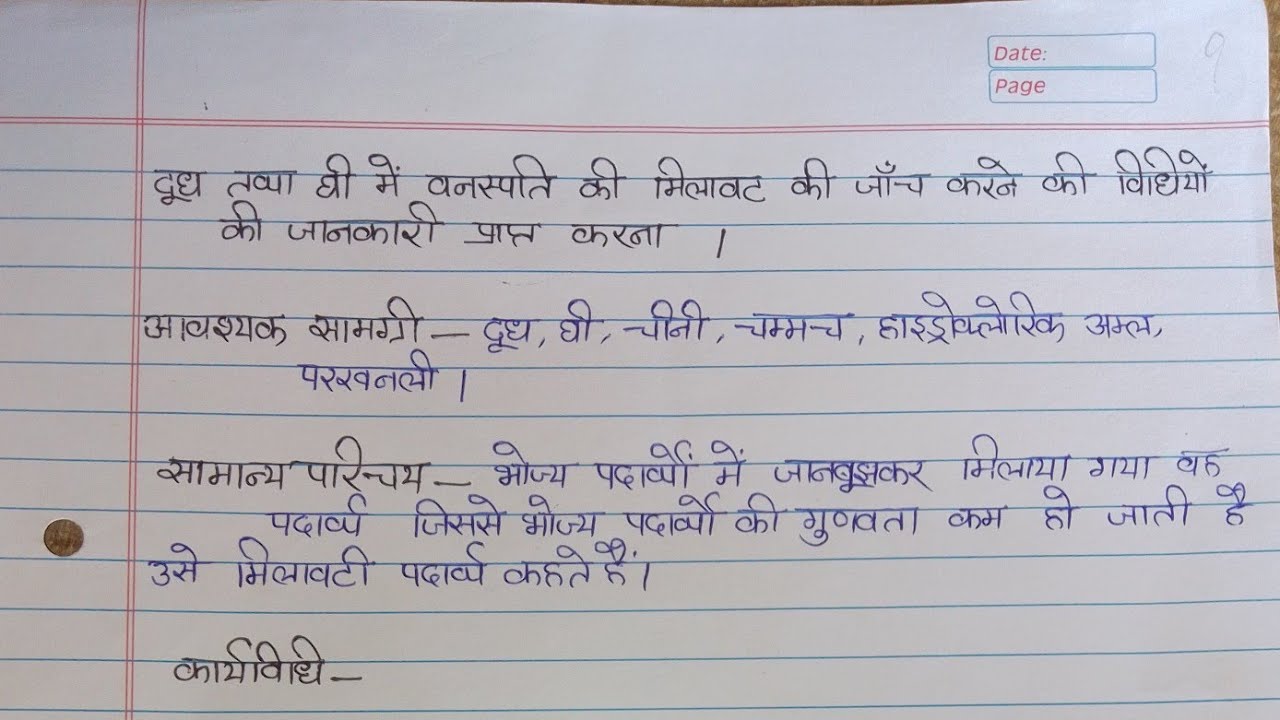 Date:
Page
9
दूध तथा घी में वनस्पति की मिलावट की जाँच करने की विधियों
की जानकारी प्राप्त करना ।
आवश्यक सामग्री – दूध, घी, चीनी, चम्मच, हाइड्रोक्लोरिक अम्ल,
परखनली ।
सामान्य परिचय – भोज्य पदार्थों में जानबूझकर मिलाया गया वह
पदार्थ जिससे भोज्य पदार्थों की गुणवता कम हो जाती है
उसे मिलावटी पदार्थ कहते हैं।
कार्यविधि –